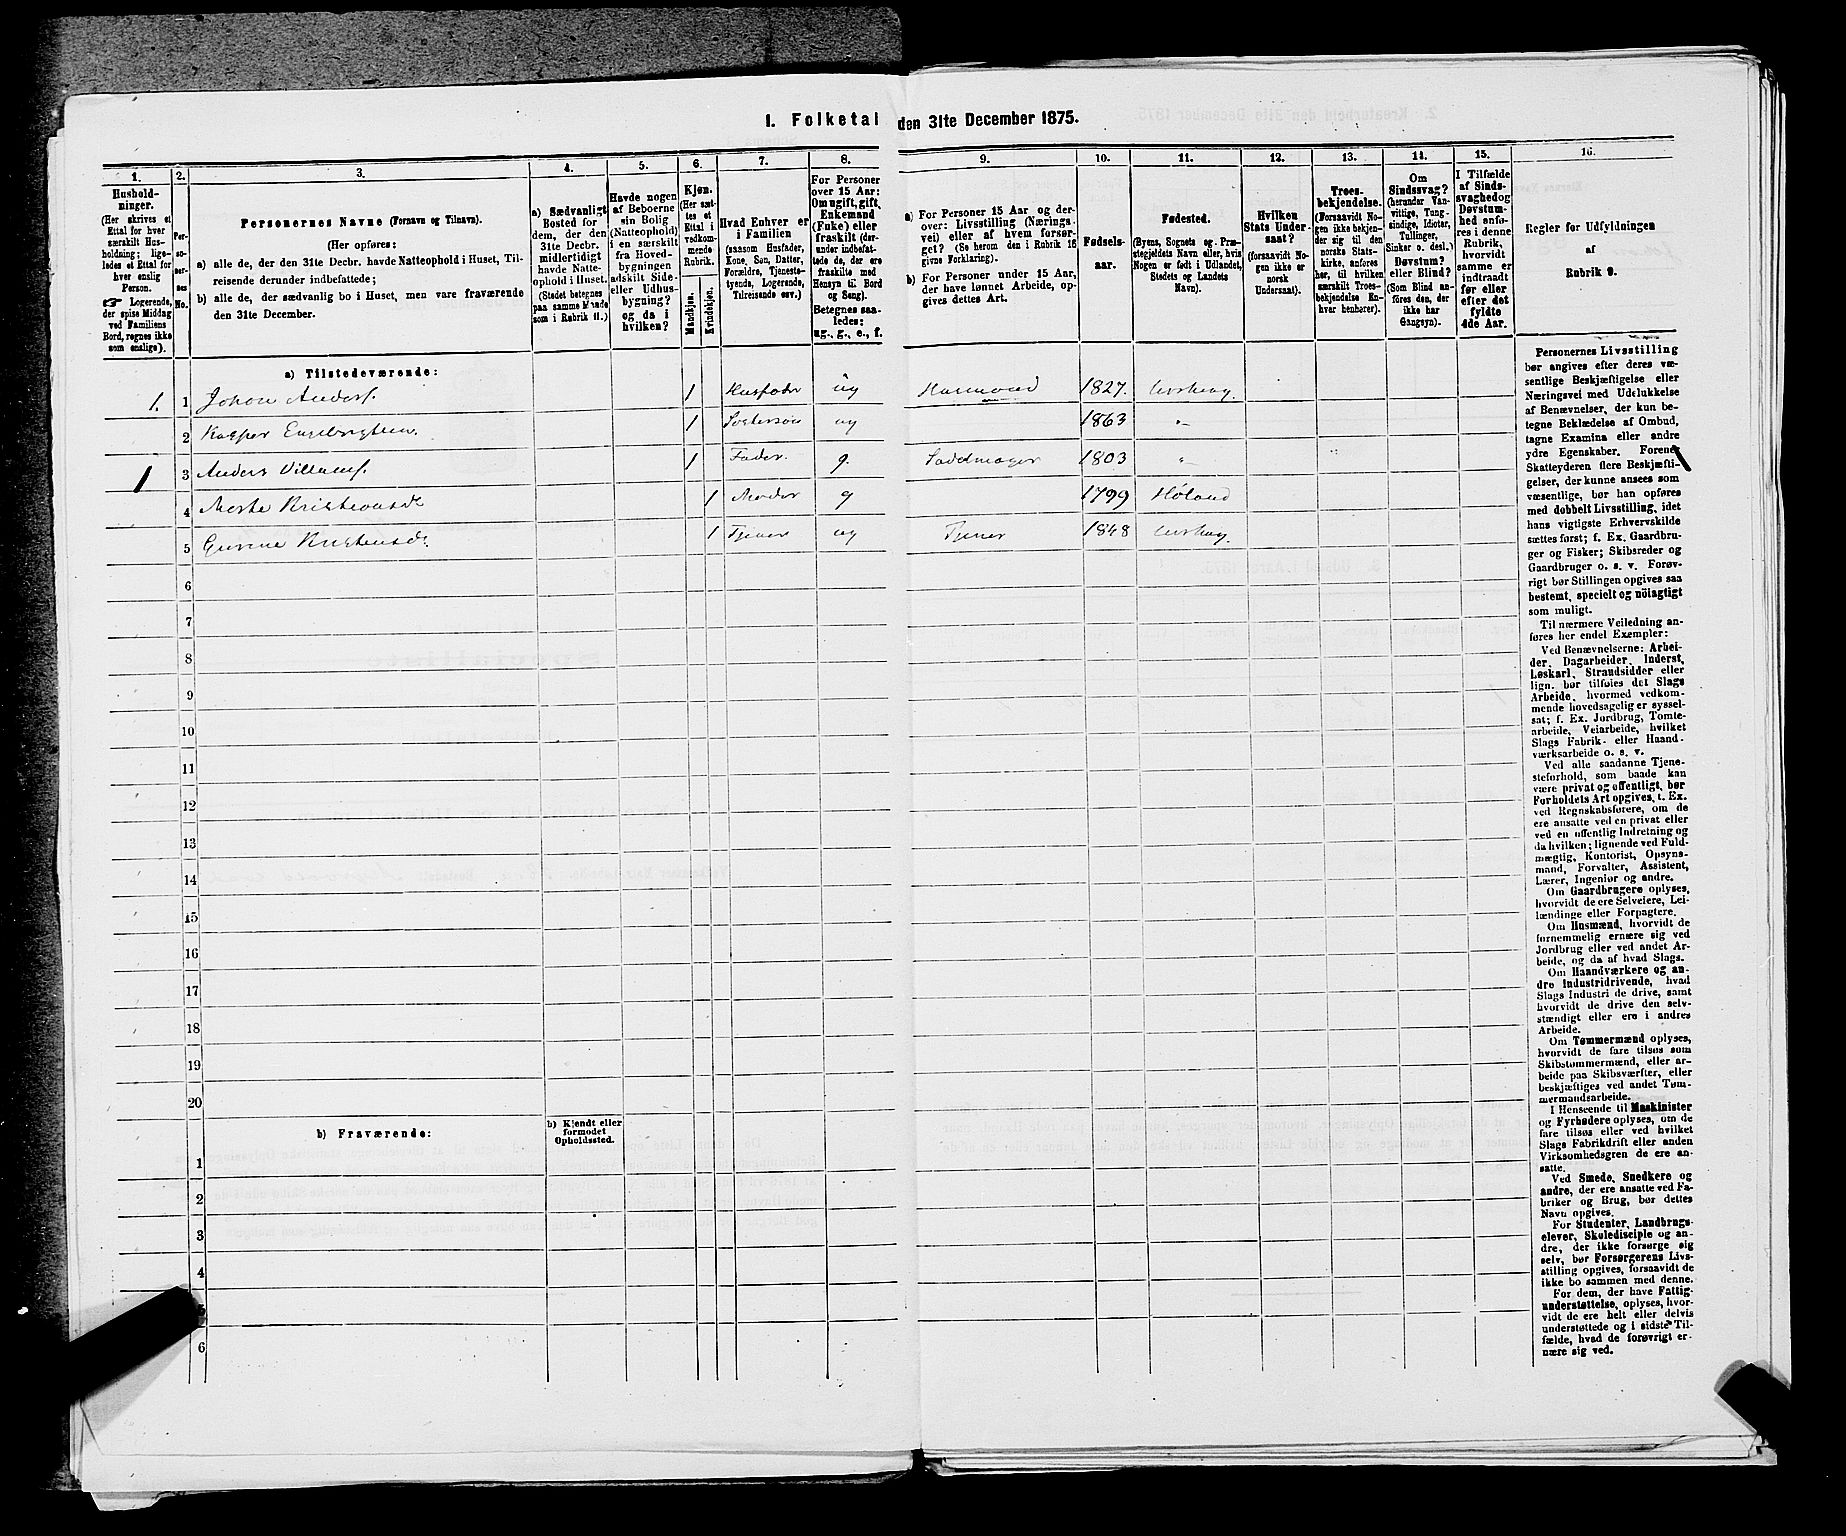 1. Folketal den 31te December 1875.
1.
Hushold-
ninger.
(Her skrives et
Ettal for hver
særskilt Hus-
holdning; lige-
ledes et Ettal for
hver enslig
Person.
☞ Logerende,
der spise Middag
ved Familiens
Bord, regnes ikke
som enslige).
2.
Per-
so-
ner-
nes
No.
3.
Personernes Navne (Fornavn og Tilnavn).
(Her opføres:
a) alle de, der den 31te Decbr. havde Natteophold i Huset, Til-
reisende derunder indbefattede;
b) alle de, der sædvanlig bo i Huset, men vare fraværende
den 31te December.
4.
a) Sædvanligt
Bosted for
dem, der den
31te Decbr.
midlertidigt
havde Natte-
ophold i Huset.
(Stedet betegnes
paa samme Maade
som i Rubrik 11.)
5.
Havde nogen
af Beboerne
sin Bolig
(Natteophold)
i en særskilt
fra Hoved-
bygningen
adskilt Side-
eller Udhus-
bygning?
og da i
hvilken?
6.
Kjøn.
(Her sæt-
tes et
Ettal i
vedkom-
mende
Rubrik.
Mandkjøn.
Kvindekjøn.
7.
Hvad Enhver er
i Familien
(saasom Husfader,
Kone, Søn, Datter,
Forældre, Tjeneste-
tyende, Logerende,
Tilreisende osv.)
8.
For Personer
over 15 Aar:
Om ugift, gift,
Enkemand
(Enke) eller
fraskilt (der-
under indbefat-
tede de, der ere
fraskilte med
Hensyn til Bord
og Seng).
Betegnes saa-
ledes:
ug., g., e., f.
9.
a) For Personer 15 Aar og der-
over: Livsstilling (Nærings-
vei) eller af hvem forsør-
get? (Se herom den i Rubrik 16
givne Forklaring).
b) For Personer under 15 Aar,
der have lønnet Arbeide, op-
gives dettes Art.
10.
Fødsels-
aar.
11.
Fødested.
(Byens, Sognets og Præ-
stegjeldets Navn eller, hvis
Nogen er født i Udlandet,
Stedets og Landets
Navn).
12.
Hvilken
Stats Under-
saat?
(forsaavidt No-
gen ikke er
norsk
Undersaat).
13.
Troes-
bekjendelse.
(Forsaavidt No-
gen ikke bekjen-
der sig til den
norske Stats-
kirke, anføres
her, til hvilken
særskilt Troes-
bekjendelse En-
hver henhører).
14.
Om
Sindssvag?
(herunder Van-
vittige, Tung-
sindige, Idioter,
Tullinger,
Sinker o. desl.)
Døvstum?
eller Blind?
(Som Blind an-
føres den, der
ikke har
Gangsyn).
15.
I Tilfælde
af Sinds-
svaghed og
Døvstum-
hed anfø-
res i denne
Rubrik,
hvorvidt
samme er
indtraadt
før eller
efter det
fyldte
4de Aar.
16.
Regler for Udfyldningen
af
Rubrik 9.
a) Tilstedeværende:
1. 1 Johan Anders. 1 Husfader ug Husmand 1827. Urskog.
2 Kasper Engebrigtsen. 1 Søstersøn ug 1863 "
1 3 Anders Villums. 1 Fader. g. Saddmager 1803 "
4 Marte Kristiansdr 1 Moder g 1799 Høland
5 Gurine Kristensdr. 1 Tjener ug Tjener 1848 Urskog.
6
7
8
9
10
11
12
13
14
15
16
17
18
19
20
b) Fraværende:
b) Kjendt eller
formodet
Opholdssted.
1
2
3
4
5
6
Personernes Livsstilling
bør angives efter deres væ-
sentlige Beskjæftigelse eller
Næringsvei med Udelukkelse
af Benævnelser, der kun be-
tegne Beklædelse af Ombud,
tagne Examina eller andre
ydre Egenskaber. Forener
Skatteyderen flere Beskjæfti-
gelser, der kunne ansees som
væsentlige, bør han opføres
med dobbelt Livsstilling, idet
hans vigtigste Erhvervskilde
sættes først; f. Ex. Gaardbru-
ger og Fisker; Skibsreder og
Gaardbruger o. s. v. Forøv-
rigt bør Stillingen opgives saa
bestemt, specielt og nøiagtigt
som muligt.
Til nærmere Veiledning an-
føres her endel Exempler:
Ved Benævnelserne: Arbei-
der, Dagarbeider, Inderst,
Løskarl, Strandsidder eller
lign. bør tilføies det Slags
Arbeide, hvormed vedkom-
mende hovedsagelig er syssel-
sat; f. Ex. Jordbrug, Tomte-
arbeide, Veiarbeide, hvilket
Slags Fabrik- eller Haand-
værksarbeide o. s. v.
Ved alle saadanne Tjene-
steforhold, som baade kan
være privat og offentligt, bør
Forholdets Art opgives, t. Ex.
ved Regnskabsførere, om de
ere ansatte ved en privat eller
ved en offentlig Indretning og
da hvilken; lignende ved Fuld-
mægtig, Kontorist, Opsyns-
mand, Forvalter, Assistent,
Lærer, Ingeniør og andre.
Om Gaardbrugere oplyses,
hvorvidt de ere Selveiere, Lei-
lændinge eller Forpagtere.
Om Husmænd, hvorvidt de
fornemmelig ernære sig ved
Jordbrug eller ved andet Ar-
beide, og da af hvad Slags.
Om Haandværkere og an-
dre Industridrivende, hvad
Slags Industri de drive, samt
hvorvidt de drive den selv-
stændigt eller ere i andres
Arbeide.
Om Tømmermænd oplyses,
hvorvidt de fare tilsøs som
Skibstømmermænd, eller ar-
beide paa Skibsværfter, eller
beskjæftiges ved andet Tøm-
mermandsarbeide.
I Henseende til Maskinister
og Fyrbødere oplyses, om de
fare tilsøs eller ved hvilket
Slags Fabrikdrift eller anden
Virksomhedsgren de ere an-
satte.
Ved Smede, Snedkere og
andre, der ere ansatte ved Fa-
briker og Brug, bør dettes
Navn opgives.
For Studenter, Landbrugs-
elever, Skoledisciple og an-
dre, der ikke forsørge sig
selv, bør Forsørgerens Livs-
stilling opgives, forsaavidt de
ikke bo sammen med denne.
For dem, der have Fattig-
understøttelse, oplyses, hvor-
vidt de ere helt eller delvis
understøttede og i sidste Til-
fælde, hvad de forøvrigt er-
nære sig ved.